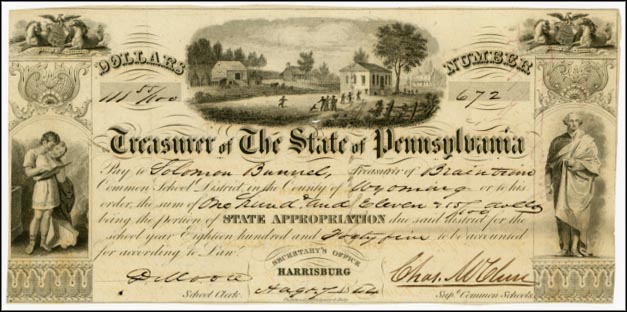 DOLLARS
NUMBER
111 55/100
672
Treasurer of The State of Pennsylvania
Pay to Solomon Bunnel, Treasurer of Braintrim
Common School District, in the County of Wyoming or to his
order, the sum of One hund & and Eleven & 55/100 dolls
being the portion of STATE APPROPRIATION due said district for the
school year Eighteen hundred and Forty five to be accounted
for according to Law.
SECRETARY'S OFFICE
HARRISBURG
Chas. McClure
School Clerk.
Supt. Common Schools.